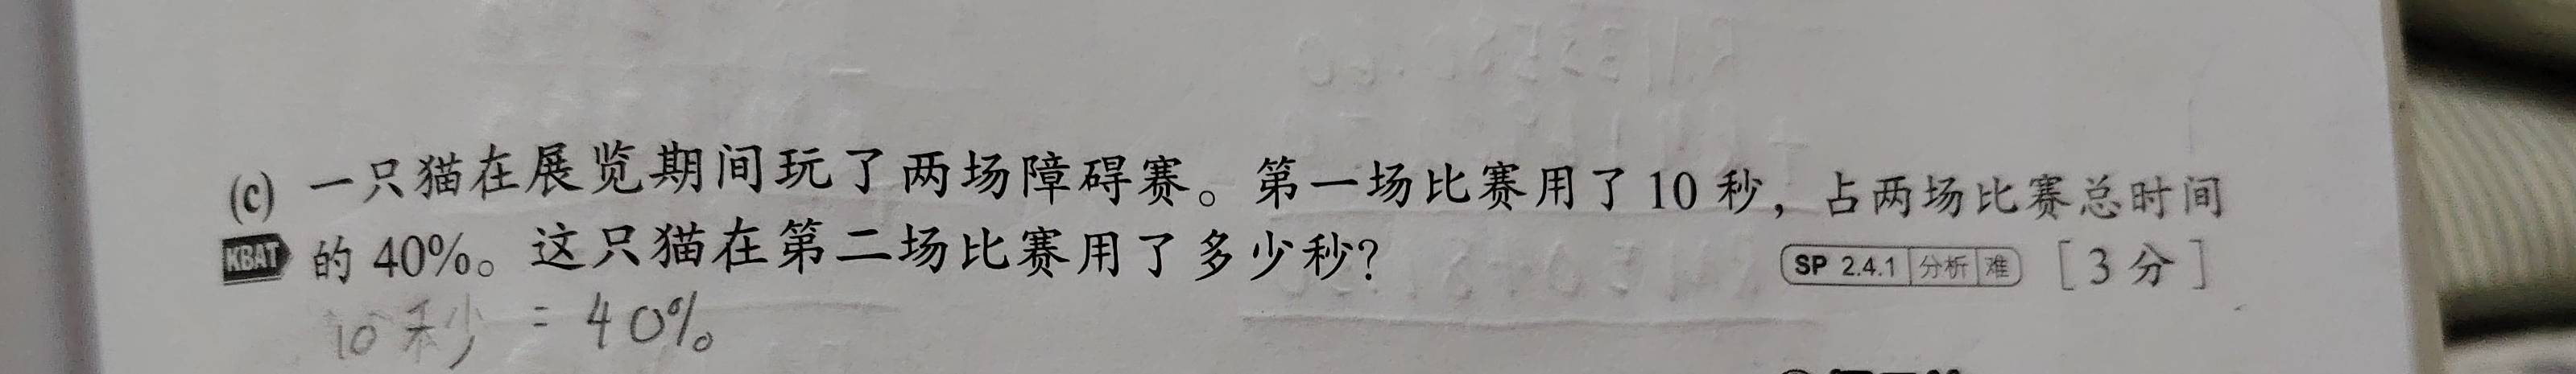 (c) 一只猫在展览期间玩了两场障碍赛。第一场比赛用了 10 秒，占两场比赛总时间
KBAT 的 40%。这只猫在第二场比赛用了多少秒？ SP 2.4.1 分析 难 [3 分]
10 秒 = 40%